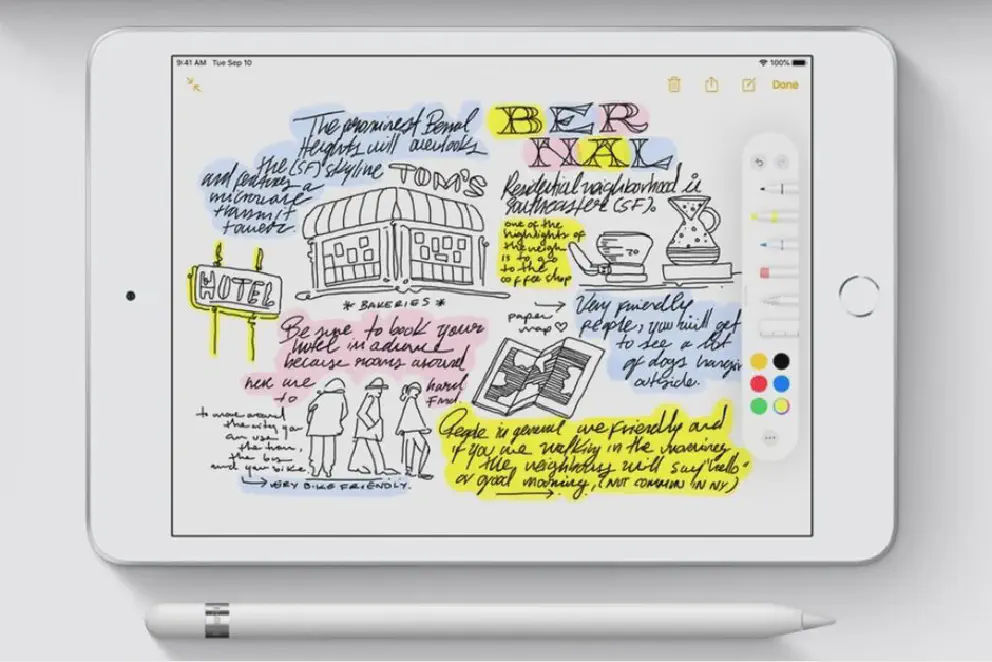 9:41 AM Tue Sep 10
100%
Done
The prominest Bernal
Heights will overlooks
the (SF) skyline
and features a
microwave
transmit
tower.
BER
NAL
TOM'S
Residential neighborhood is
southeastern (SF).
one of the
highlights of
the neigh
is to go
to the
coffee shop
HOTEL
* BAKERIES *
Be sure to book your
hotel in advance
because rooms around
here are
to
hard
find.
paper
map
Very friendly
people, you will get
to see a lot
of dogs hangin
outside.
to move around
the city you
can use
the train,
the bus
and your bike
VERY BIKE FRIENDLY.
People in general are friendly and
if you are walking in the mornings
the neighbors will say "hello"
or good morning, (NOT COMMON IN NY)